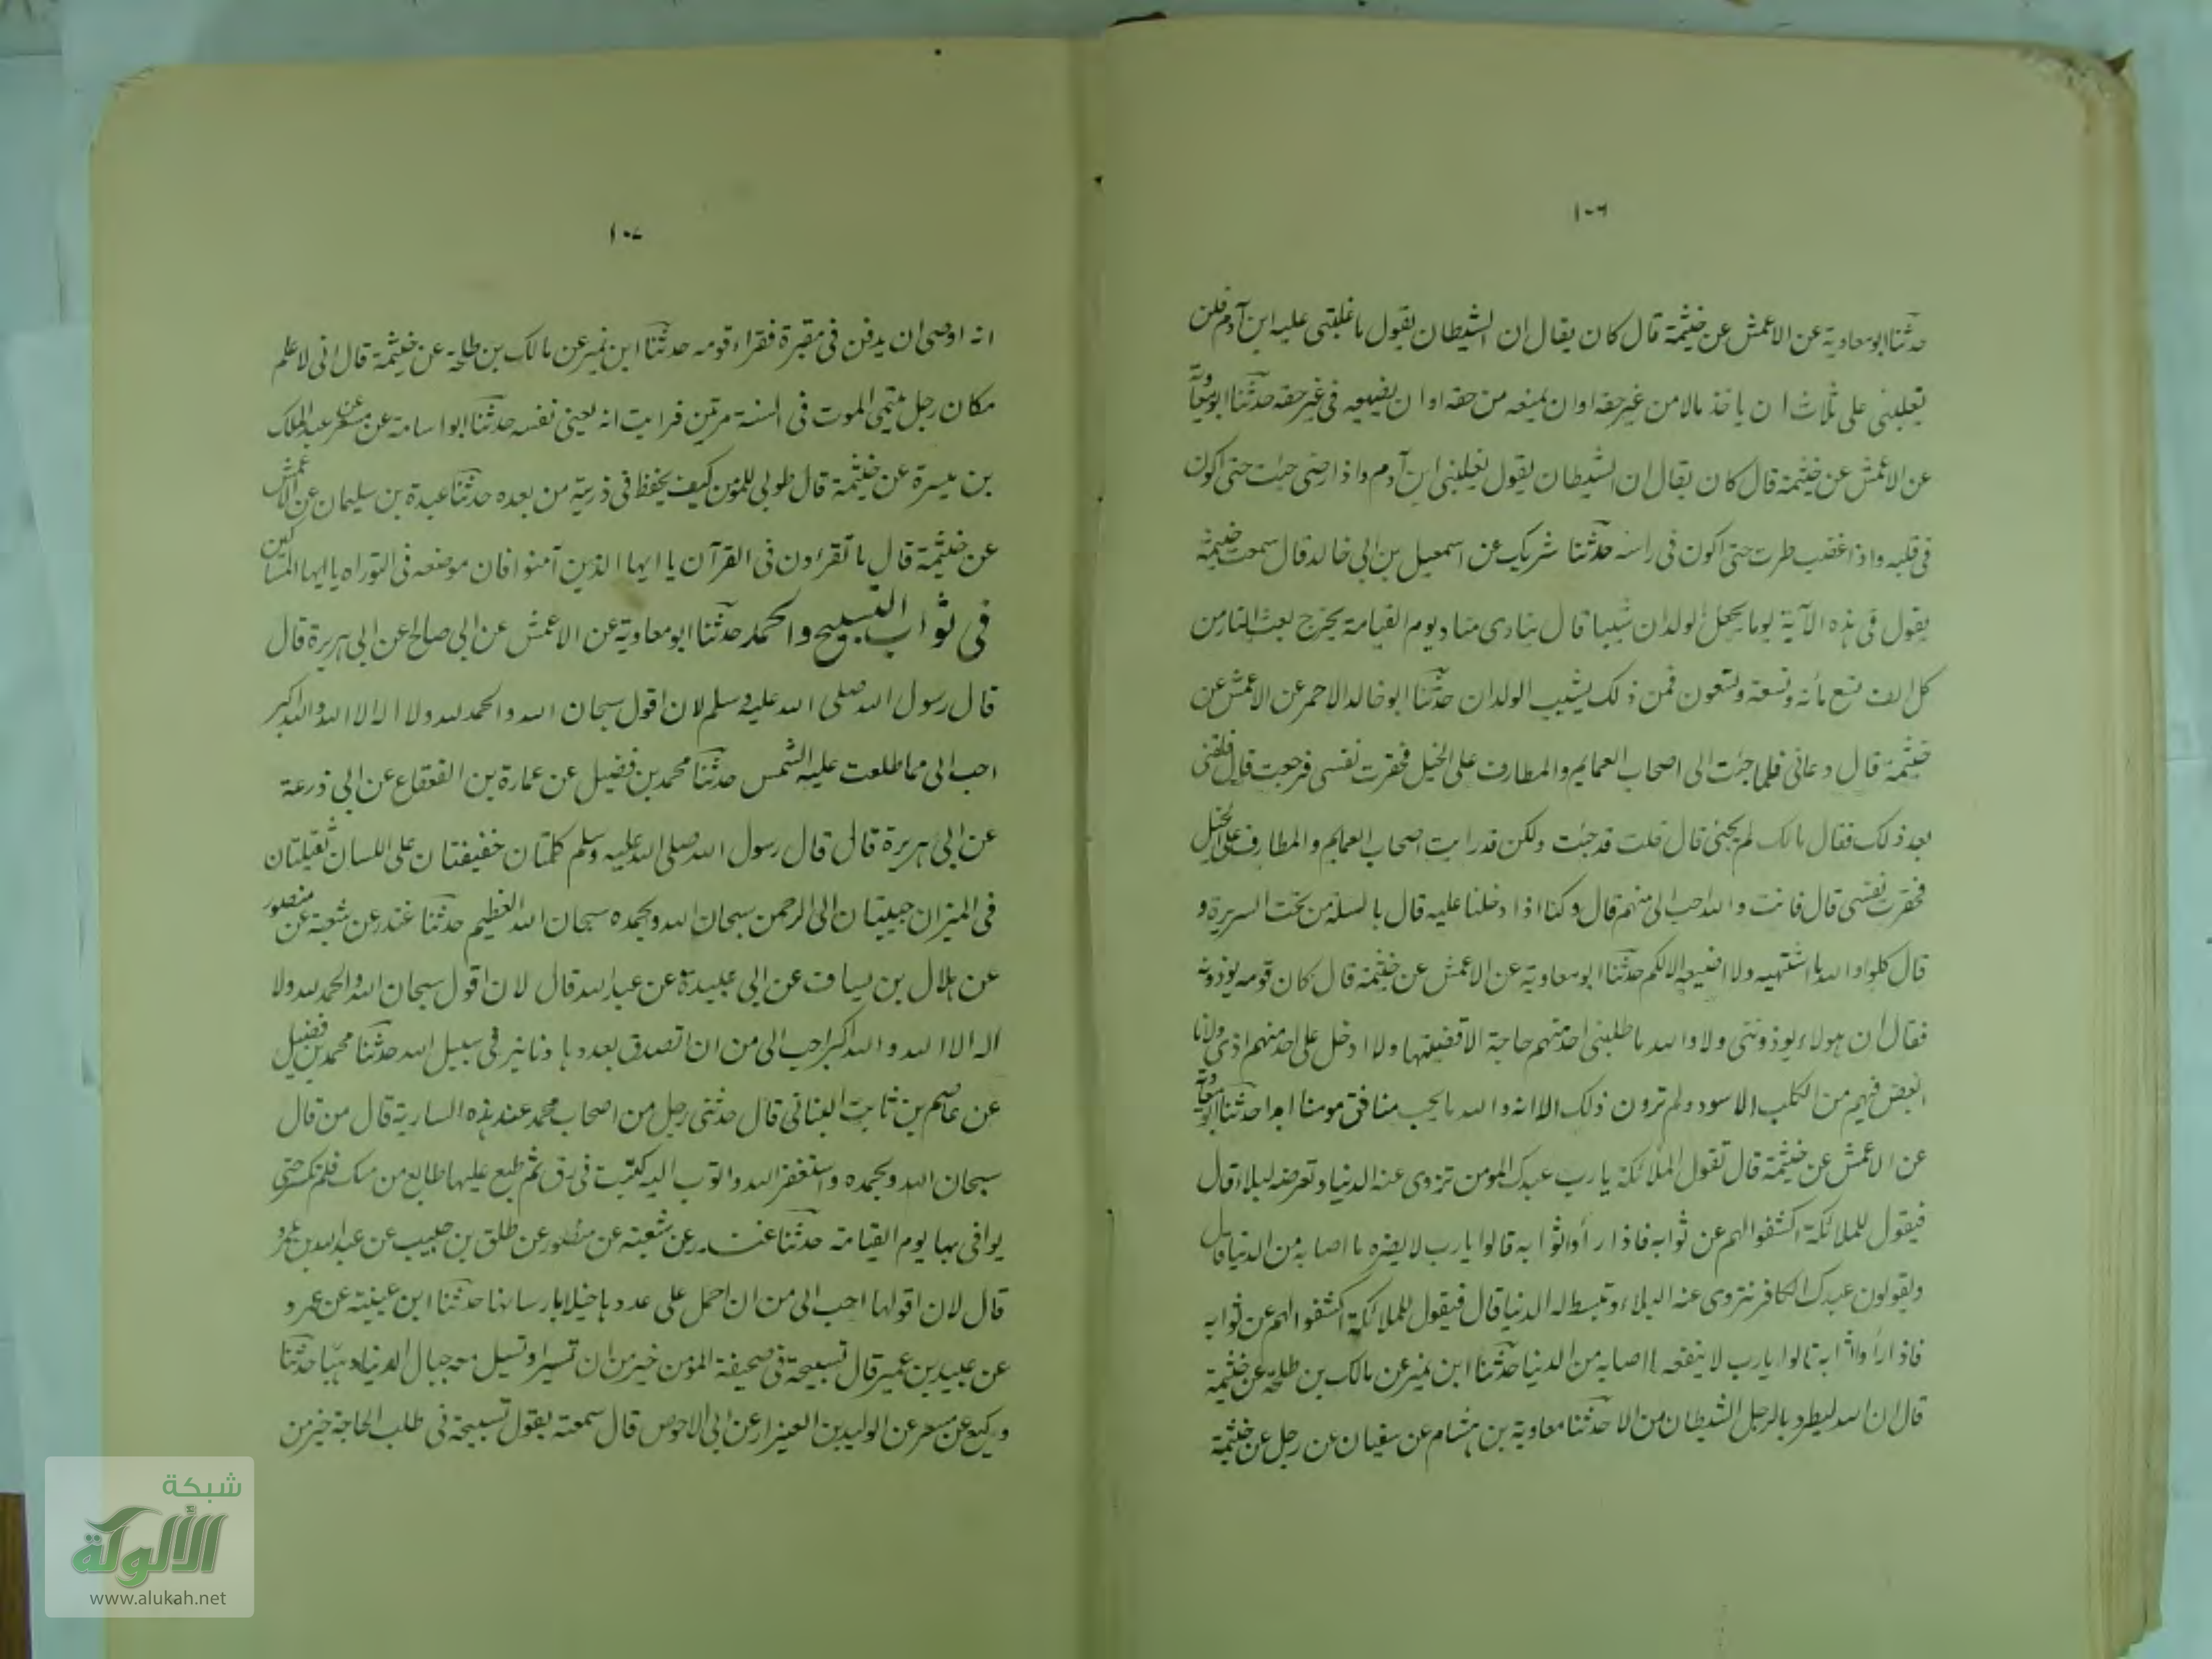 ١٠٦
حدثنا ابو معاوية عن الاعمش عن خيثمة قال كان يقال ان الشيطان يقول ما غلبنى عليه ابن آدم فلن
يغلبنى على ثلاث ان ياخذ مالا من غير حقه او ان يمنعه من حقه او ان يضيعه فى غير حقه حدثنا ابو معاوية
عن الاعمش عن خيثمة قال كان يقال ان الشيطان يقول يغلبنى ابن آدم واذا رضى جئت حتى اكون
فى قلبه واذا غضب طرت حتى اكون فى راسه حدثنا شريك عن اسمعيل بن ابى خالد قال سمعت خيثمة
يقول فى هذه الآية يوما يجعل الولدان شيبا قال ينادى مناد يوم القيامة يخرج بعث النار من
كل الف تسع مأئة وتسعة وتسعون فمن ذلك يشيب الولدان حدثنا ابو خالد الاحمر عن الاعمش عن
خيثمة قال دعانى فلما جئت الى اصحاب العمايم والمطارف على الخيل فحقرت نفسى فرجعت قال فلقينى
بعد ذلك فقال مالك لم يجئ قال قلت قد جئت ولكن قد رايت اصحاب العمايم والمطارف على الخيل
فحقرت نفسى قال فانت والله احب الى منهم قال وكنا اذا دخلنا عليه قال بالسلة من تحت السريرة و
قال كلوا والله ما اشتهيه ولا اضيعه الا لكم حدثنا ابو معاوية عن الاعمش عن خيثمة قال كان قومه يوذونه
فقال ان هولاء يوذوننى ولا والله ما طلبنى احد منهم حاجة الا قضيتها ولا ادخل على احد منهم اذى ولانا
ابغض فيهم من الكلب الاسود ولم ترون ذلك الا انه والله ما يحب منافق مومنا ابدا حدثنا ابو معاوية
عن الاعمش عن خيثمة قال تقول الملائكة يا رب عبدك المومن تزوى عنه الدنيا وتعرضه لبلاء قال
فيقول للملائكة اكشفوا لهم عن ثوابه فاذا رأوا ثوابه قالوا يارب لا يضره ما اصابه من الدنيا قال
ويقولون عبدك الكافر تزوى عنه البلاء وتبسط له الدنيا قال فيقول للملائكة اكشفوا لهم عن ثوابه
فاذا رأوا ثوابه قالوا يارب لا ينفعه ما اصابه من الدنيا حدثنا ابن نمير عن مالك بن طلحة عن خيثمة
قال ان الله ليطرد بالرجل الشيطان من الا حدثنا معاوية بن هشام عن سفيان عن رجل عن خيثمة
١٠٧
انه اوصى ان يدفن فى مقبرة فقراء قومه حدثنا ابن نمير عن مالك بن طلحة عن خيثمة قال انى لاعلم
مكان رجل يتمى الموت فى السنة مرتين فرايت انه يعنى نفسه حدثنا ابو اسامة عن مسعر عن عبد الملك
بن ميسرة عن خيثمة قال طوبى للمؤمن كيف يحفظ فى ذريته من بعده حدثنا عبدة بن سليمان عن الاعمش
عن خيثمة قال ما تقراون فى القرآن يا ايها الذين آمنوا فان موضعه فى التوراه يا ايها المساكين
فى ثواب التسبيح والحمد حدثنا ابو معاوية عن الاعمش عن ابى صالح عن ابى هريرة قال
قال رسول الله صلى الله عليه وسلم لان اقول سبحان الله والحمد لله ولا اله الا الله والله اكبر
احب الى مما طلعت عليه الشمس حدثنا محمد بن فضيل عن عمارة بن القعقاع عن ابى زرعة
عن ابى هريرة قال قال رسول الله صلى الله عليه وسلم كلمتان خفيفتان على اللسان ثقيلتان
فى الميزان حبيبتان الى الرحمن سبحان الله وبحمده سبحان الله العظيم حدثنا غندر عن شعبة عن منصور
عن هلال بن يساف عن ابى عبيدة عن عبد الله قال لان اقول سبحان الله والحمد لله ولا
اله الا الله والله اكبر احب الى من ان اتصدق بعددها دنانير فى سبيل الله حدثنا محمد بن فضيل
عن عاصم بن ثابت البنانى قال حدثنى رجل من اصحاب محمد عند هذه السارية قال من قال
سبحان الله وبحمده واستغفر الله واتوب اليه كتبت فى رق ثم طبع عليها طابع من مسك فلم تكسر حتى
يوافى بها يوم القيامة حدثنا غندر عن شعبة عن منصور عن طلق بن حبيب عن عبد الله بن عمرو
قال لان اقولها احب الى من ان احمل على عددها خيلا بارسانها حدثنا ابن عيينة عن عمرو
عن عبيد بن عمير قال تسبيحة فى صحيفة المؤمن خير من ان تسير او تسيل معه جبال الدنيا ذهبا حدثنا
وكيع عن مسعر عن الوليد بن العيزار عن ابى الاحوص قال سمعته يقول تسبيحة فى طلب الحاجة خير من
شبكة
الألوكة
www.alukah.net